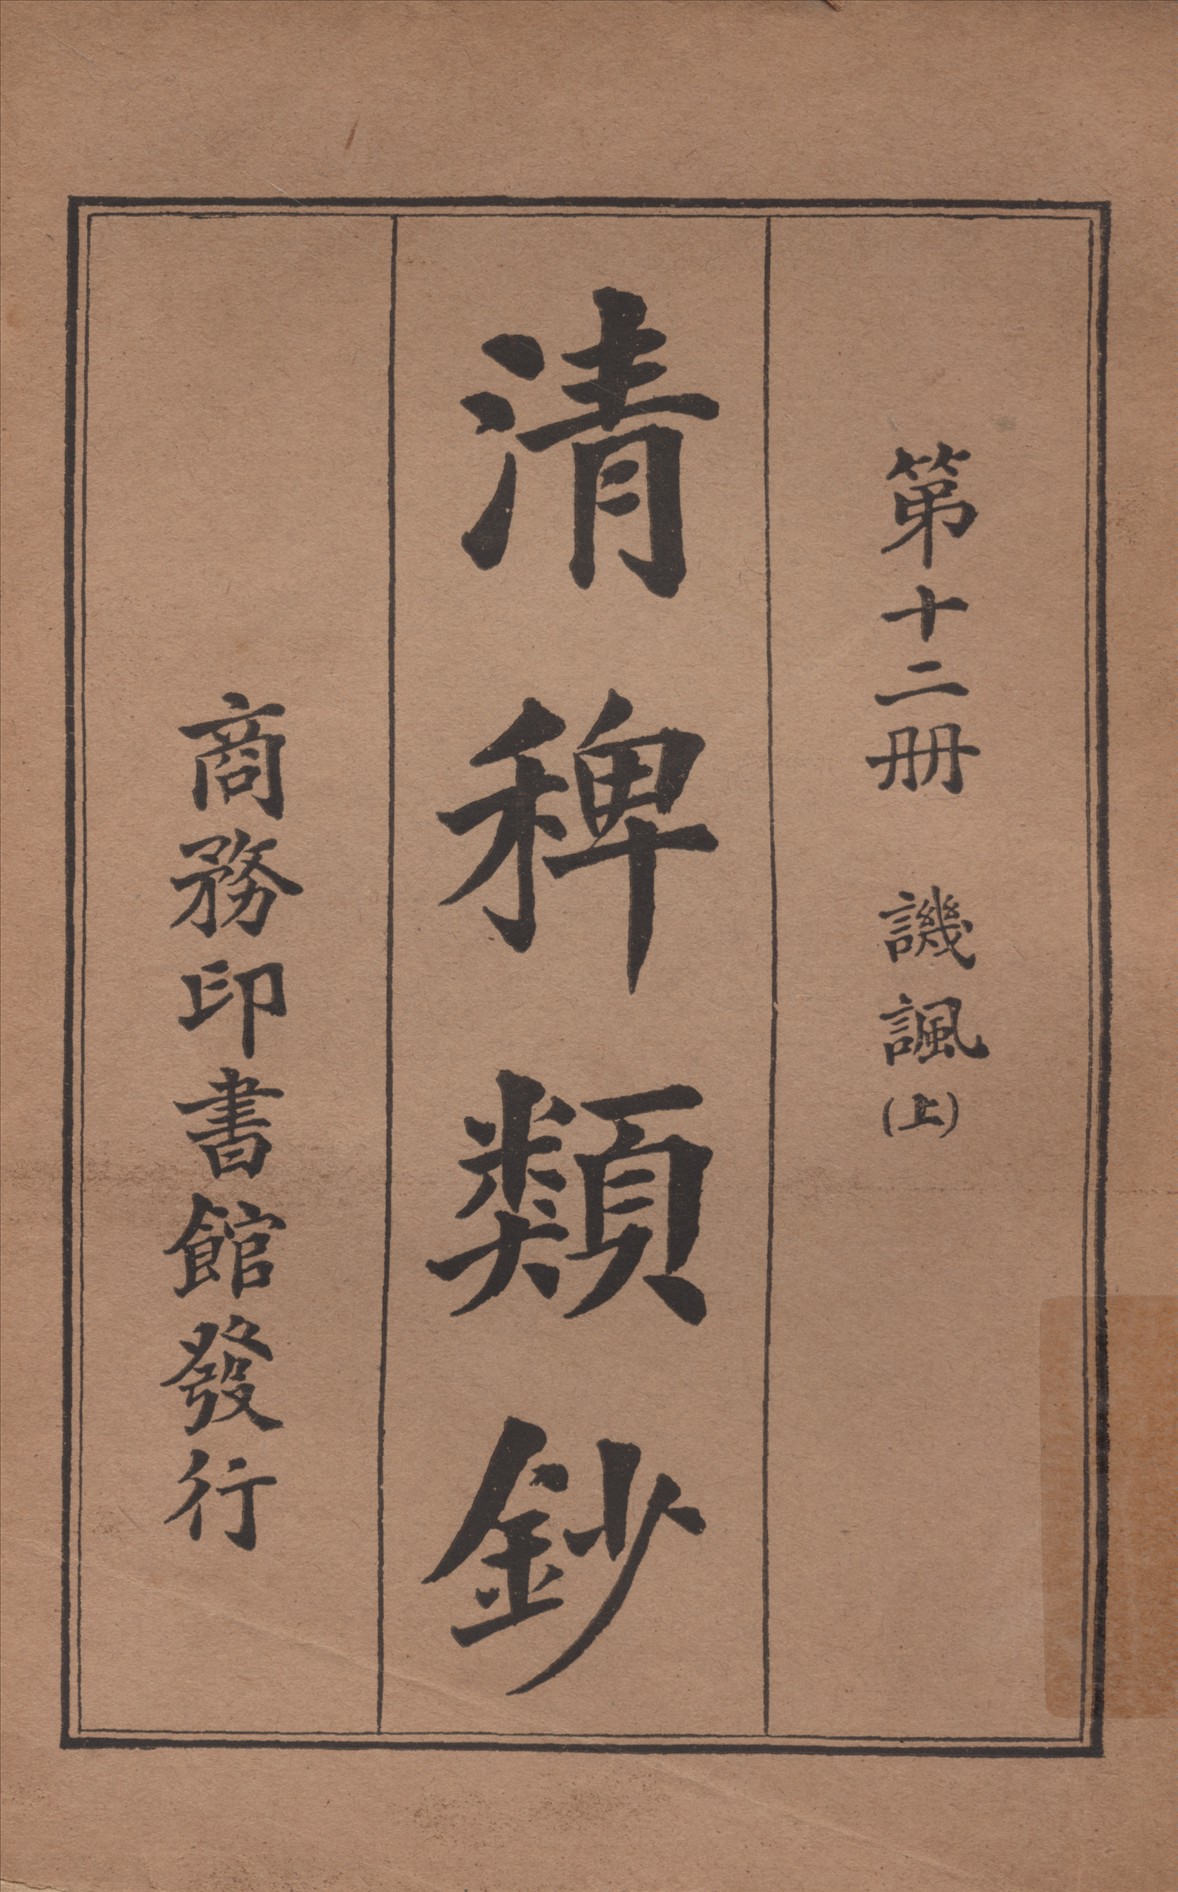 第十二册 譏諷(上)
清稗類鈔
商務印書館發行